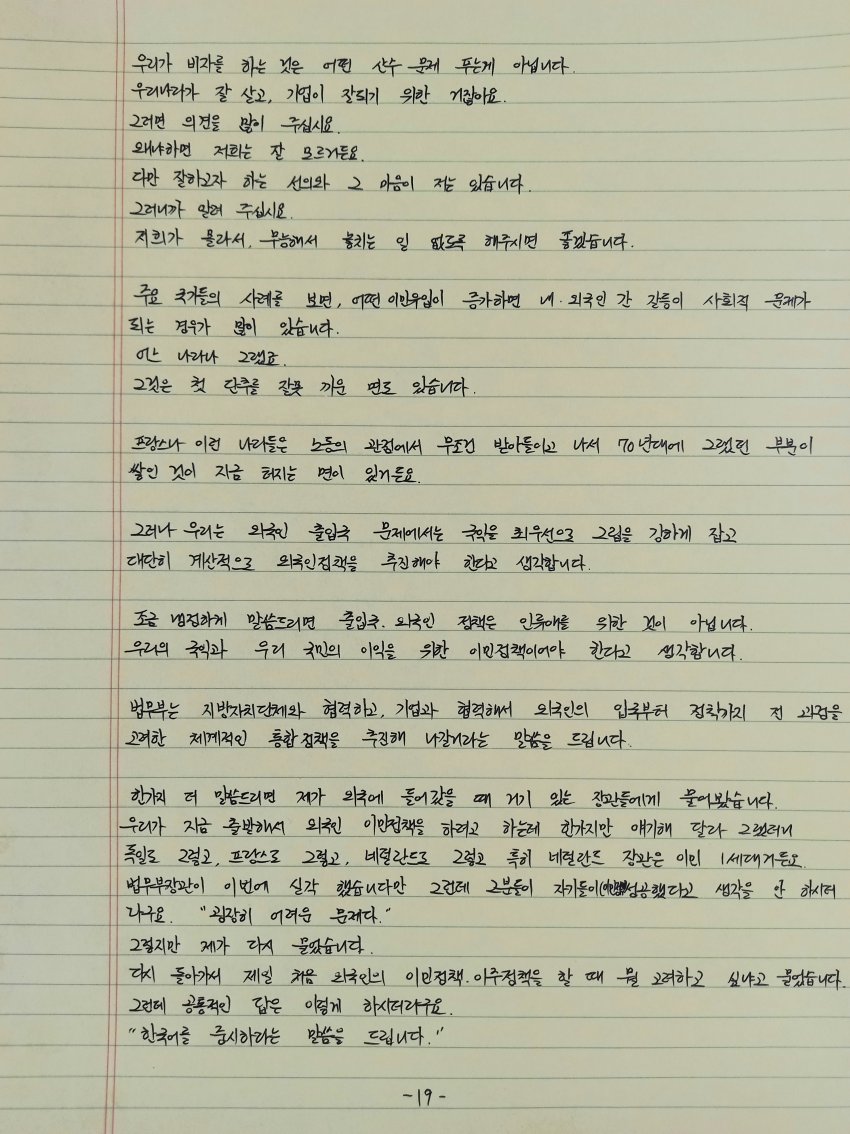 우리가 비자를 하는 것은 어떤 산수 문제 푸는게 아닙니다.
우리나라가 잘 살고, 기업이 잘되기 위한 거잖아요.
그러면 의견을 많이 주십시오.
왜냐하면 저희는 잘 모르거든요.
다만 잘하고자 하는 선의와 그 마음이 저는 있습니다.
그러니까 알려 주십시요.
저희가 몰라서, 무능해서 놓치는 일 없도록 해주시면 좋겠습니다.
주요 국가들의 사례를 보면, 어떤 이민유입이 증가하면 내·외국인 간 갈등이 사회적 문제가
되는 경우가 많이 있습니다.
어느 나라나 그랬죠.
그것은 첫 단추를 잘못 끼운 면도 있습니다.
프랑스나 이런 나라들은 노동의 관점에서 무조건 받아들이고 나서 70년대에 그랬던 부분이
쌓인 것이 지금 터지는 면이 있거든요.
그러나 우리는 외국인 출입국 문제에서는 국익을 최우선으로 그립을 강하게 잡고
대단히 계산적으로 외국인정책을 추진해야 한다고 생각합니다.
조금 냉정하게 말씀드리면 출입국·외국인 정책은 인류애를 위한 것이 아닙니다.
우리의 국익과 우리 국민의 이익을 위한 이민정책이어야 한다고 생각합니다.
법무부는 지방자치단체와 협력하고, 기업과 협력해서 외국인의 입국부터 정착까지 전 과정을
고려한 체계적인 통합정책을 추진해 나갈거라는 말씀을 드립니다.
한가지 더 말씀드리면 제가 외국에 들어갔을 때 거기 있는 장관들에게 물어봤습니다.
우리가 지금 출발해서 외국인 이민정책을 하려고 하는데 한가지만 얘기해 달라 그랬더니
독일도 그렇고, 프랑스도 그렇고, 네덜란드도 그렇고 특히 네덜란드 장관은 이민 1세대거든요.
법무부장관이 이번에 실각 했습니다만 그런데 그분들이 자기들이 성공했다고 생각을 안 하시더
라구요. "굉장히 어려운 문제다."
그렇지만 제가 다시 물었습니다.
다시 돌아가서 제일 처음 외국인의 이민정책·이주정책을 할 때 뭘 고려하고 싶냐고 물었습니다.
그런데 공통적인 답은 이렇게 하시더라구요.
"한국어를 중시하라는 말씀을 드립니다."
-19-